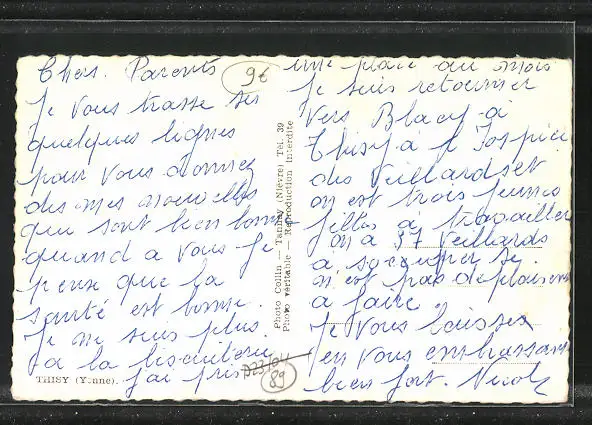 Chers. Parents
Je vous trasse ses
quelques lignes
pour vous donnez
des mes nouvelles
qui sont bien bonne
quand a vous je
pense que la
santé est bonne.
Je ne suis plus
a la biscuiterie
j'ai pris
THISY (Yonne).
9€
89
Photo Collin — Tannay (Nièvre) Tél. 39
Photo véritable — Reproduction Interdite
une place au mois
je suis retourner
vers Blacy à
Thisy à l'Hospice
des Veillards et
on est trois jeunes
filles a travailler
on a 37 Veillards
a soccuper se
n'est pas deplaisent
a faire
Je vous laisses
en vous embrassant
bien fort. Nicole